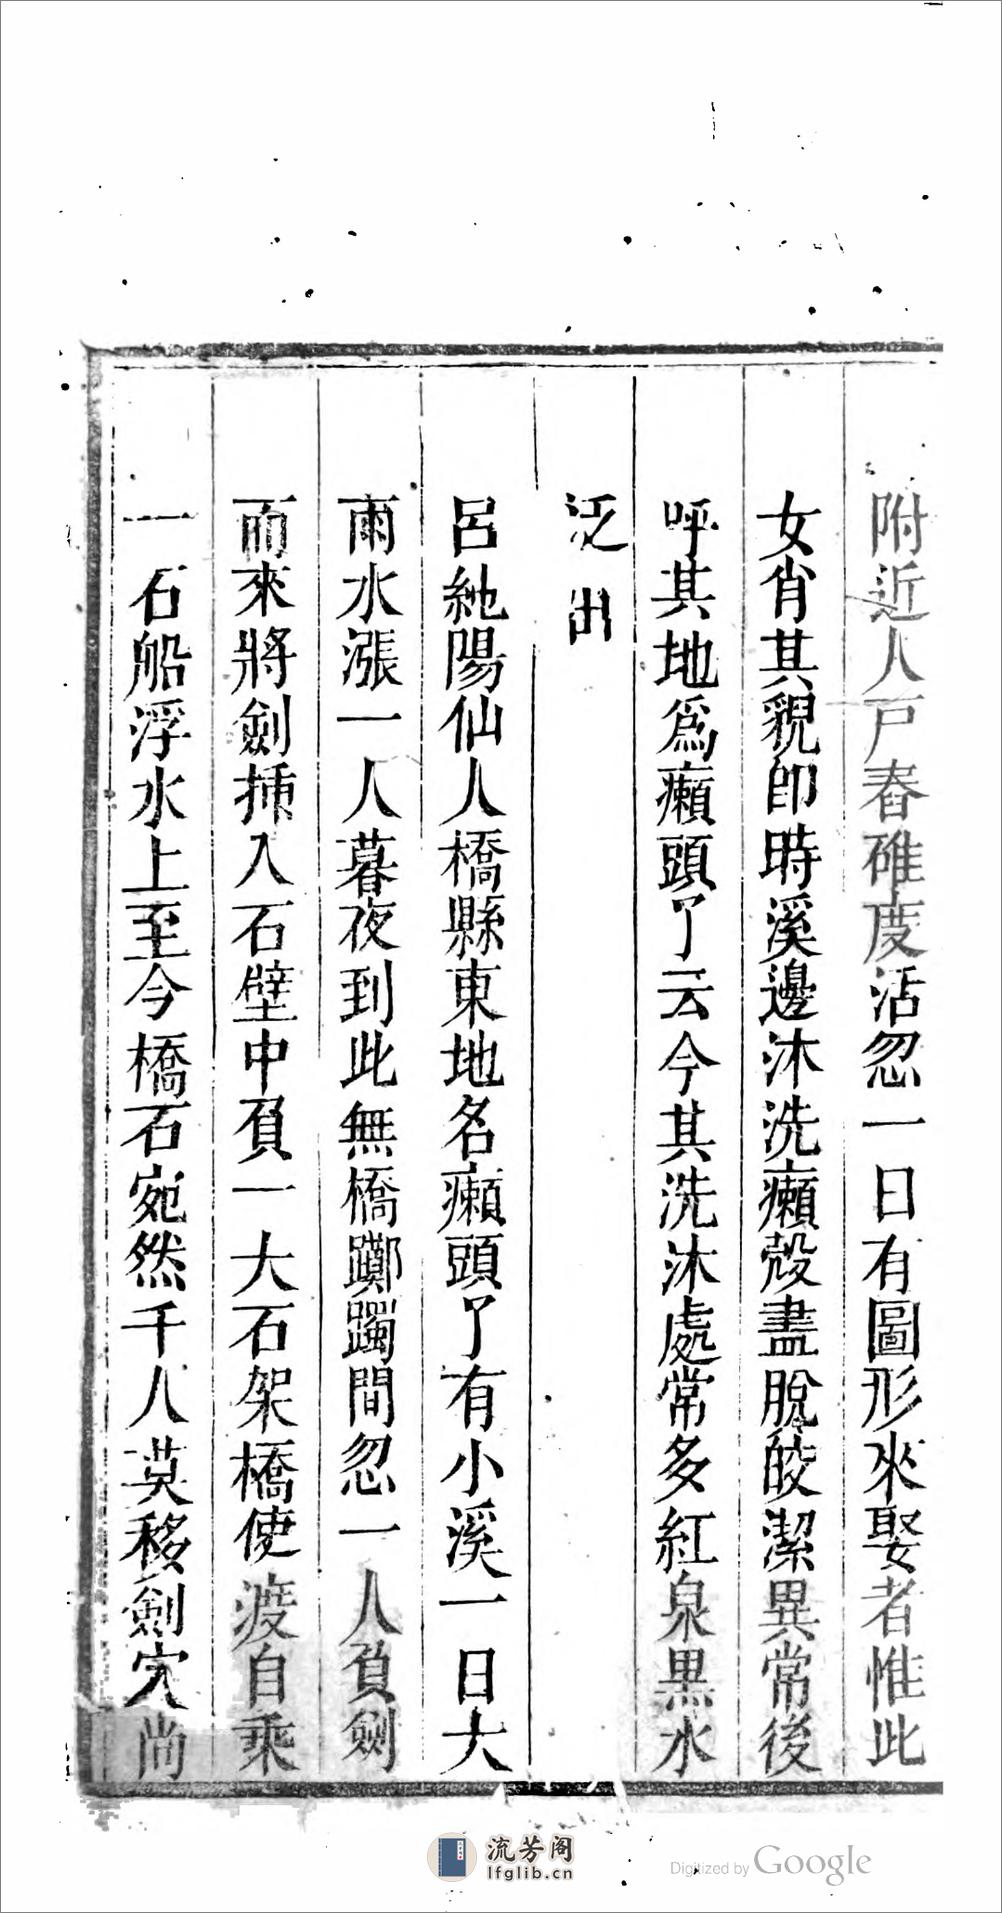 附近人戸舂碓度活忽一日有圖形來娶者惟此
女肖其貎卽時溪邊沐洗癩殼盡脫皎潔異常後
呼其地爲癩頭丫云今其洗沐處常多紅泉黑水
泛出
呂純陽仙人橋縣東地名癩頭丫有小溪一日大
雨水漲一人暮夜到此無橋躑躅間忽一人負劍
而來將劍揷入石壁中負一大石架橋使渡自乘
一石船浮水上至今橋石宛然千人莫移劍穴尚
流芳阁
lfglib.cn
Digitized by Google